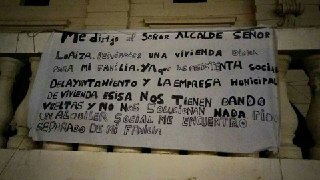 Me dirijo al SEÑOR ALCALDE SEÑOR
LOAIZA. PIDIÉNDOLE UNA VIVIENDA DIGNA
PARA MI FAMILIA. YA QUE LA ASISTENTA SOCIAL
DEL AYUNTAMIENTO Y LA EMPRESA MUNICIPAL
DE VIVIENDA ESISA NOS TIENEN DANDO
VUELTAS Y NO NOS SOLUCIONAN NADA PIDO
UN ALQUILER SOCIAL ME ENCUENTRO
SEPARADO DE MI FAMILIA